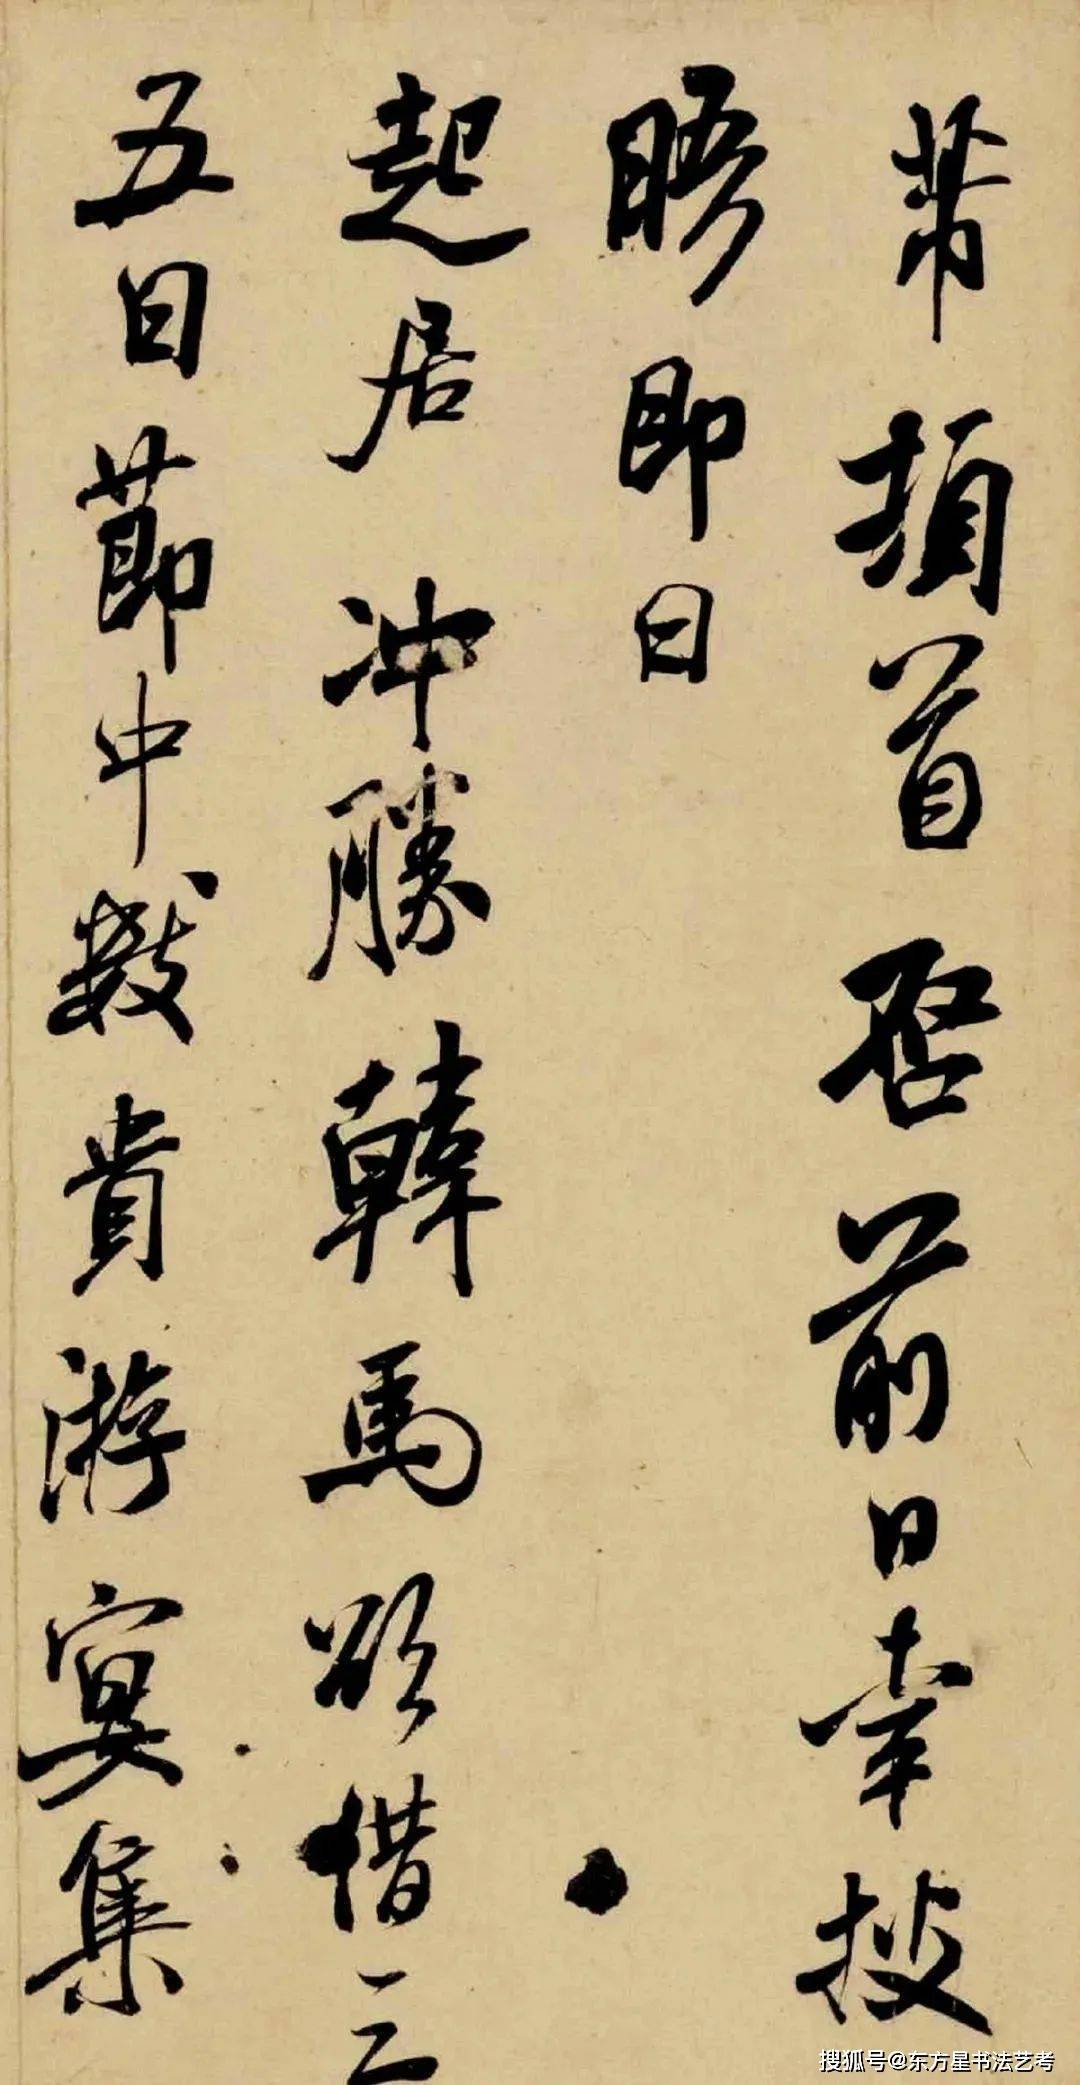 芾頓首启前日幸披
晤即日
起居冲勝韓馬欲借三
五日莭中數貴游宴集
搜狐号@东方星书法艺考